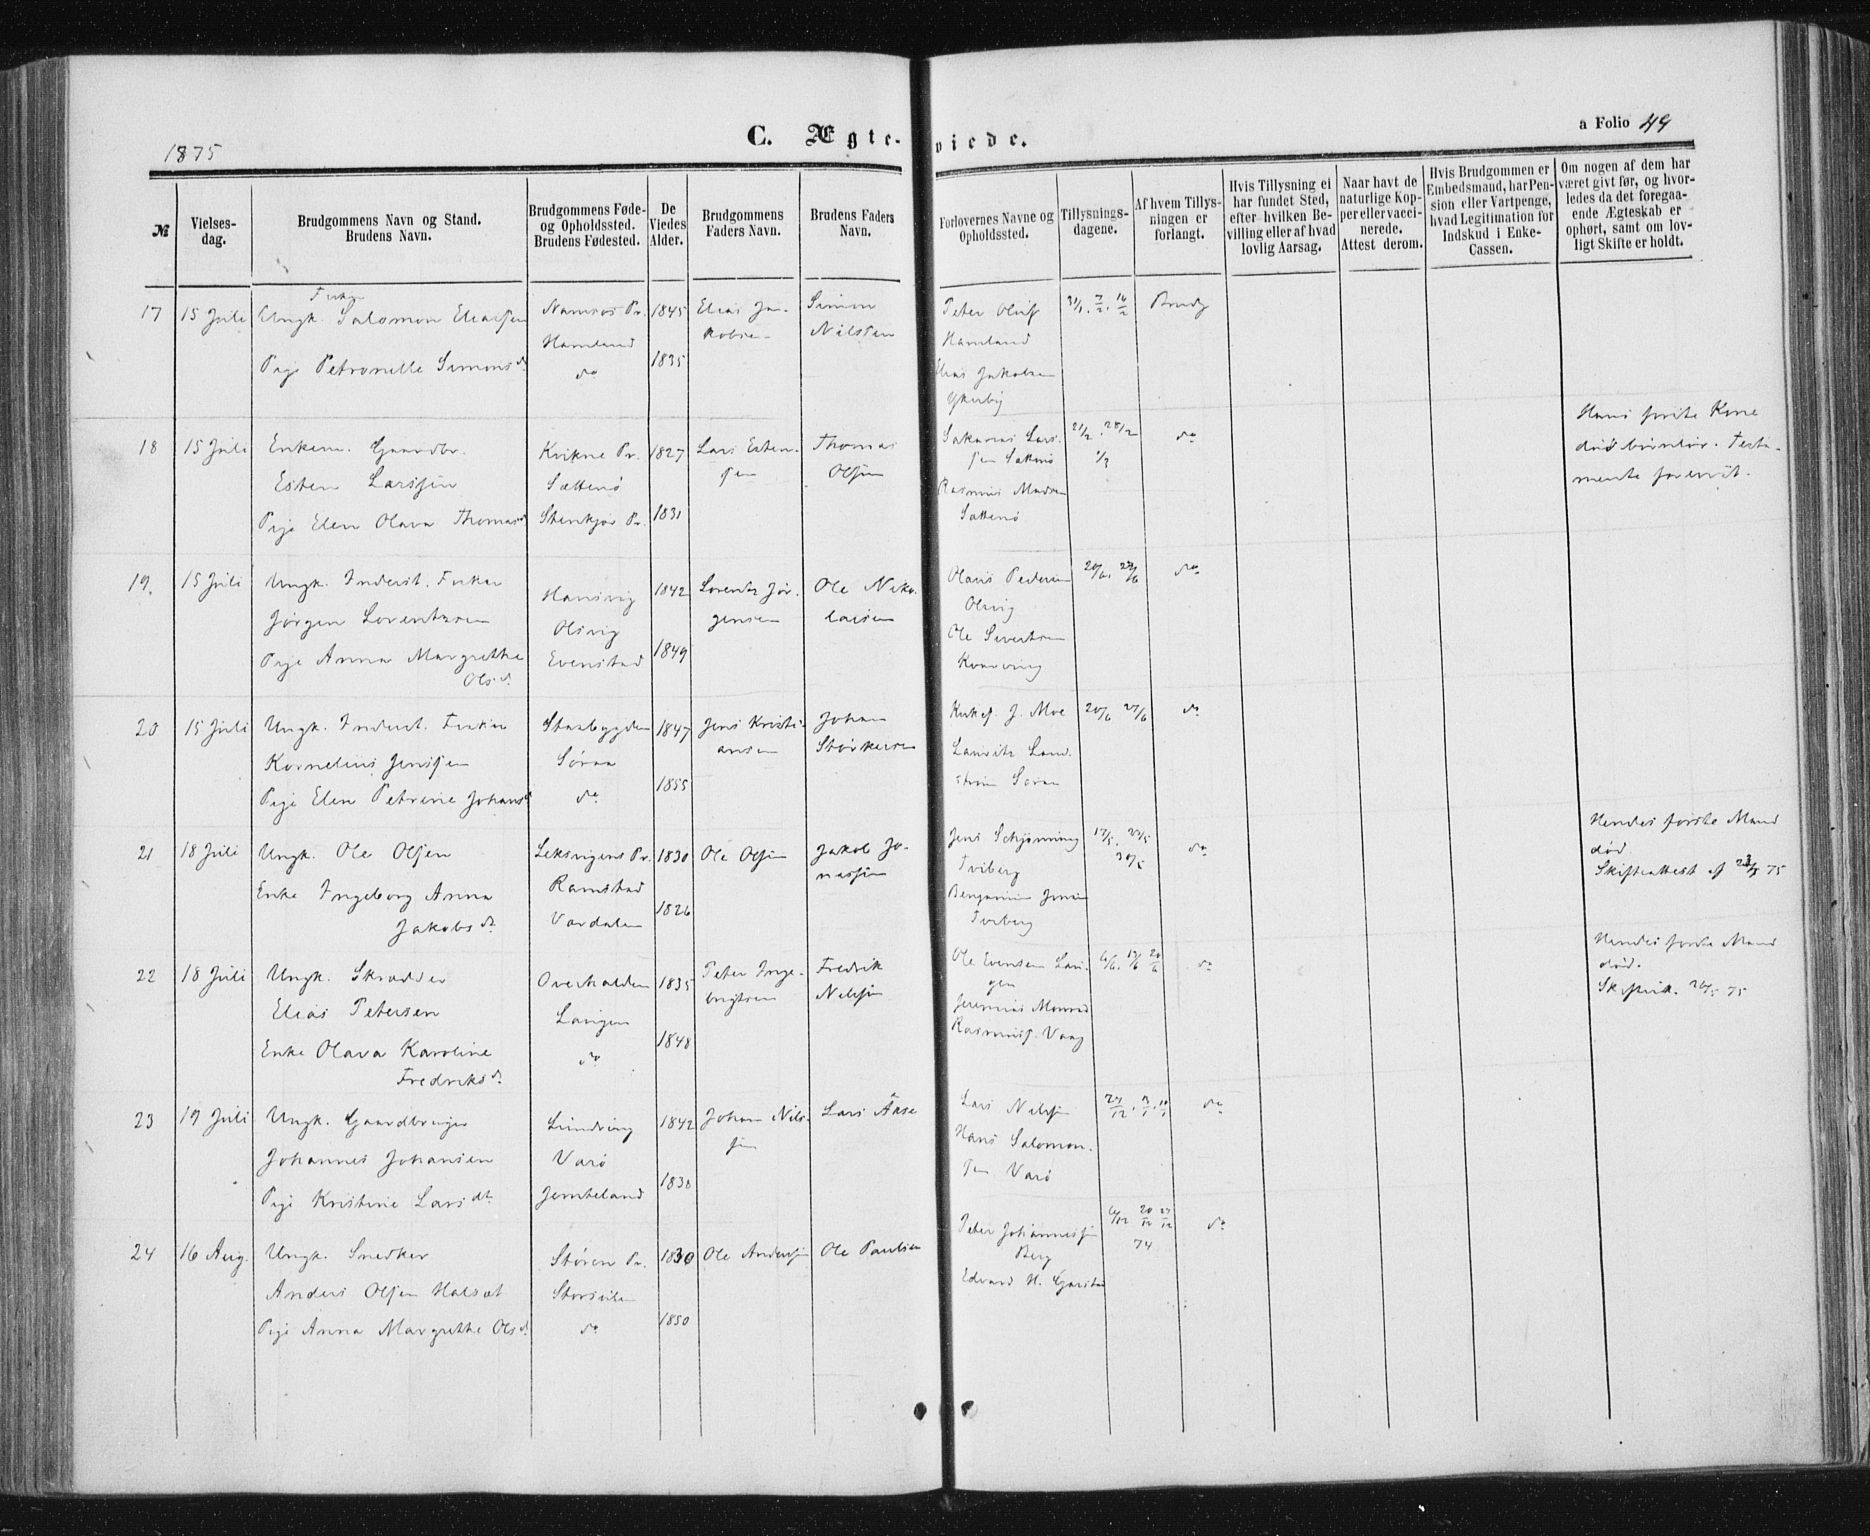 1875
C. Ægte-viede.
a Folio 49
№
Vielses-
dag.
Brudgommens Navn og Stand.
Brudens Navn.
Brudgommens Føde-
og Opholdssted.
Brudens Fødested.
De
Viedes
Alder.
Brudgommens
Faders Navn.
Brudens Faders
Navn.
Forlovernes Navne og
Opholdssted.
Tillysnings-
dagene.
Af hvem Tillys-
ningen er
forlangt.
Hvis Tillysning ei
har fundet Sted,
efter hvilken Be-
villing eller af hvad
lovlig Aarsag.
Naar havt de
naturlige Kop-
per eller vacci-
nerede.
Attest derom.
Hvis Brudgommen er
Embedsmand, har Pen-
sion eller Vartpenge,
hvad Legitimation for
Indskud i Enke-
Cassen.
Om nogen af dem har
været givt før, og hvor-
ledes da det foregaa-
ende Ægteskab er
ophørt, samt om lov-
ligt Skifte er holdt.
17
15 Juli
Ungk. Salomon Eliassen
Pige Petronelle Simonsd.
Namsos Pr.
Hamland
do
1845
1835
Elias Ja-
kobsen
Simon
Nilssen
Peter Oluf
Hamland
Elias Jakobsen
31/1. 7/2. 14/2
Brudg
18
15 Juli
Enkem. Gaardbr.
Esten Larssen
Pige Elen Olava Thomasd
Kvikne Pr.
Sættenø
Stenkjær Pr.
1827
1831
Lars Esten-
sen
Thomas
Olssen
Sakarias Lars-
sen Sættenø
Rasmus Madsen
Sættenø
21/2. 28/2
do
Hans første Kone
død barnløs. Testa-
mente forevist.
19.
15 Juli
Ungk. Inderst. Fisker
Jørgen Lorentssen
Pige Anna Margrethe
Olsd.
Hansvig
Olsvig
Evenstad
1842
1849
Lorents Jør-
gensen
Ole Niko-
laisen
Olaus Pedersen
Olsvig
Ole Sivertsen
20/6. 27/6
do
20
15 Juli
Ungk. Inderst. Fisker
Kornelius Jenssen
Pige Elen Petrine Johansd
Stadsbygden
Søraa
do
1847
1855
Jens Kristi-
ansen
Johan
Størkersen
Kirkes. J. Moe
Lauritz Lund-
strøm Søraa
20/6 27/6
do
21
18 Juli
Ungk. Ole Olssen
Enke Ingeborg Anna
Jakobsd.
Leksvigens Pr.
Ramstad
Værdalen
1830
1826
Ole Olssen
Jakob Jo-
nassen
Jens Schjønning
Tviberg
Benjamin Jensen
Tviberg
17/5. 23/5
30/5
do
Hendes første Mand
død.
Skifteattest af 75
22
18 Juli
Ungk. Skrædder
Elias Petersen
Enke Olava Karoline
Fredriksd.
Overhalden
Laugen
do
1835
1848
Peter Inge-
brigtsen
Fredrik
Nilssen
Ole Evensen Lau-
gen
Jeremias Monrad
Rasmuss. Vaag
6/6. 13/6 20/6
do
Hendes første Mand
død.
75
23
19 Juli
Ungk. Gaardbruger
Johannes Johansen
Pige Kristine Larsdt.
Lundring
Varø
Jemteland
1842
1830
Johan Nils-
sen
Lars Aase
Lars Nilssen
Hans Salomon-
sen Varø
27/12. 3/1. 10/1
do
24
16 Aug.
Ungk. Snedker
Anders Olssen Halsæt
Pige Anna Margrethe Olsd.
Støren Pr.
do
1830
1850
Ole Anderssen
Ole Paulsen
Peter Johannessen
Berg
Edvard H. Garstad
6/12 20/12 27/12
74
do